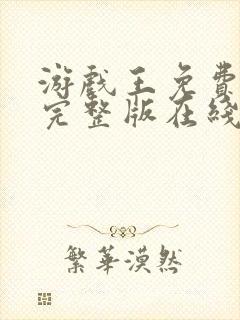 游戏王免费
完整版在线
繁华漠然